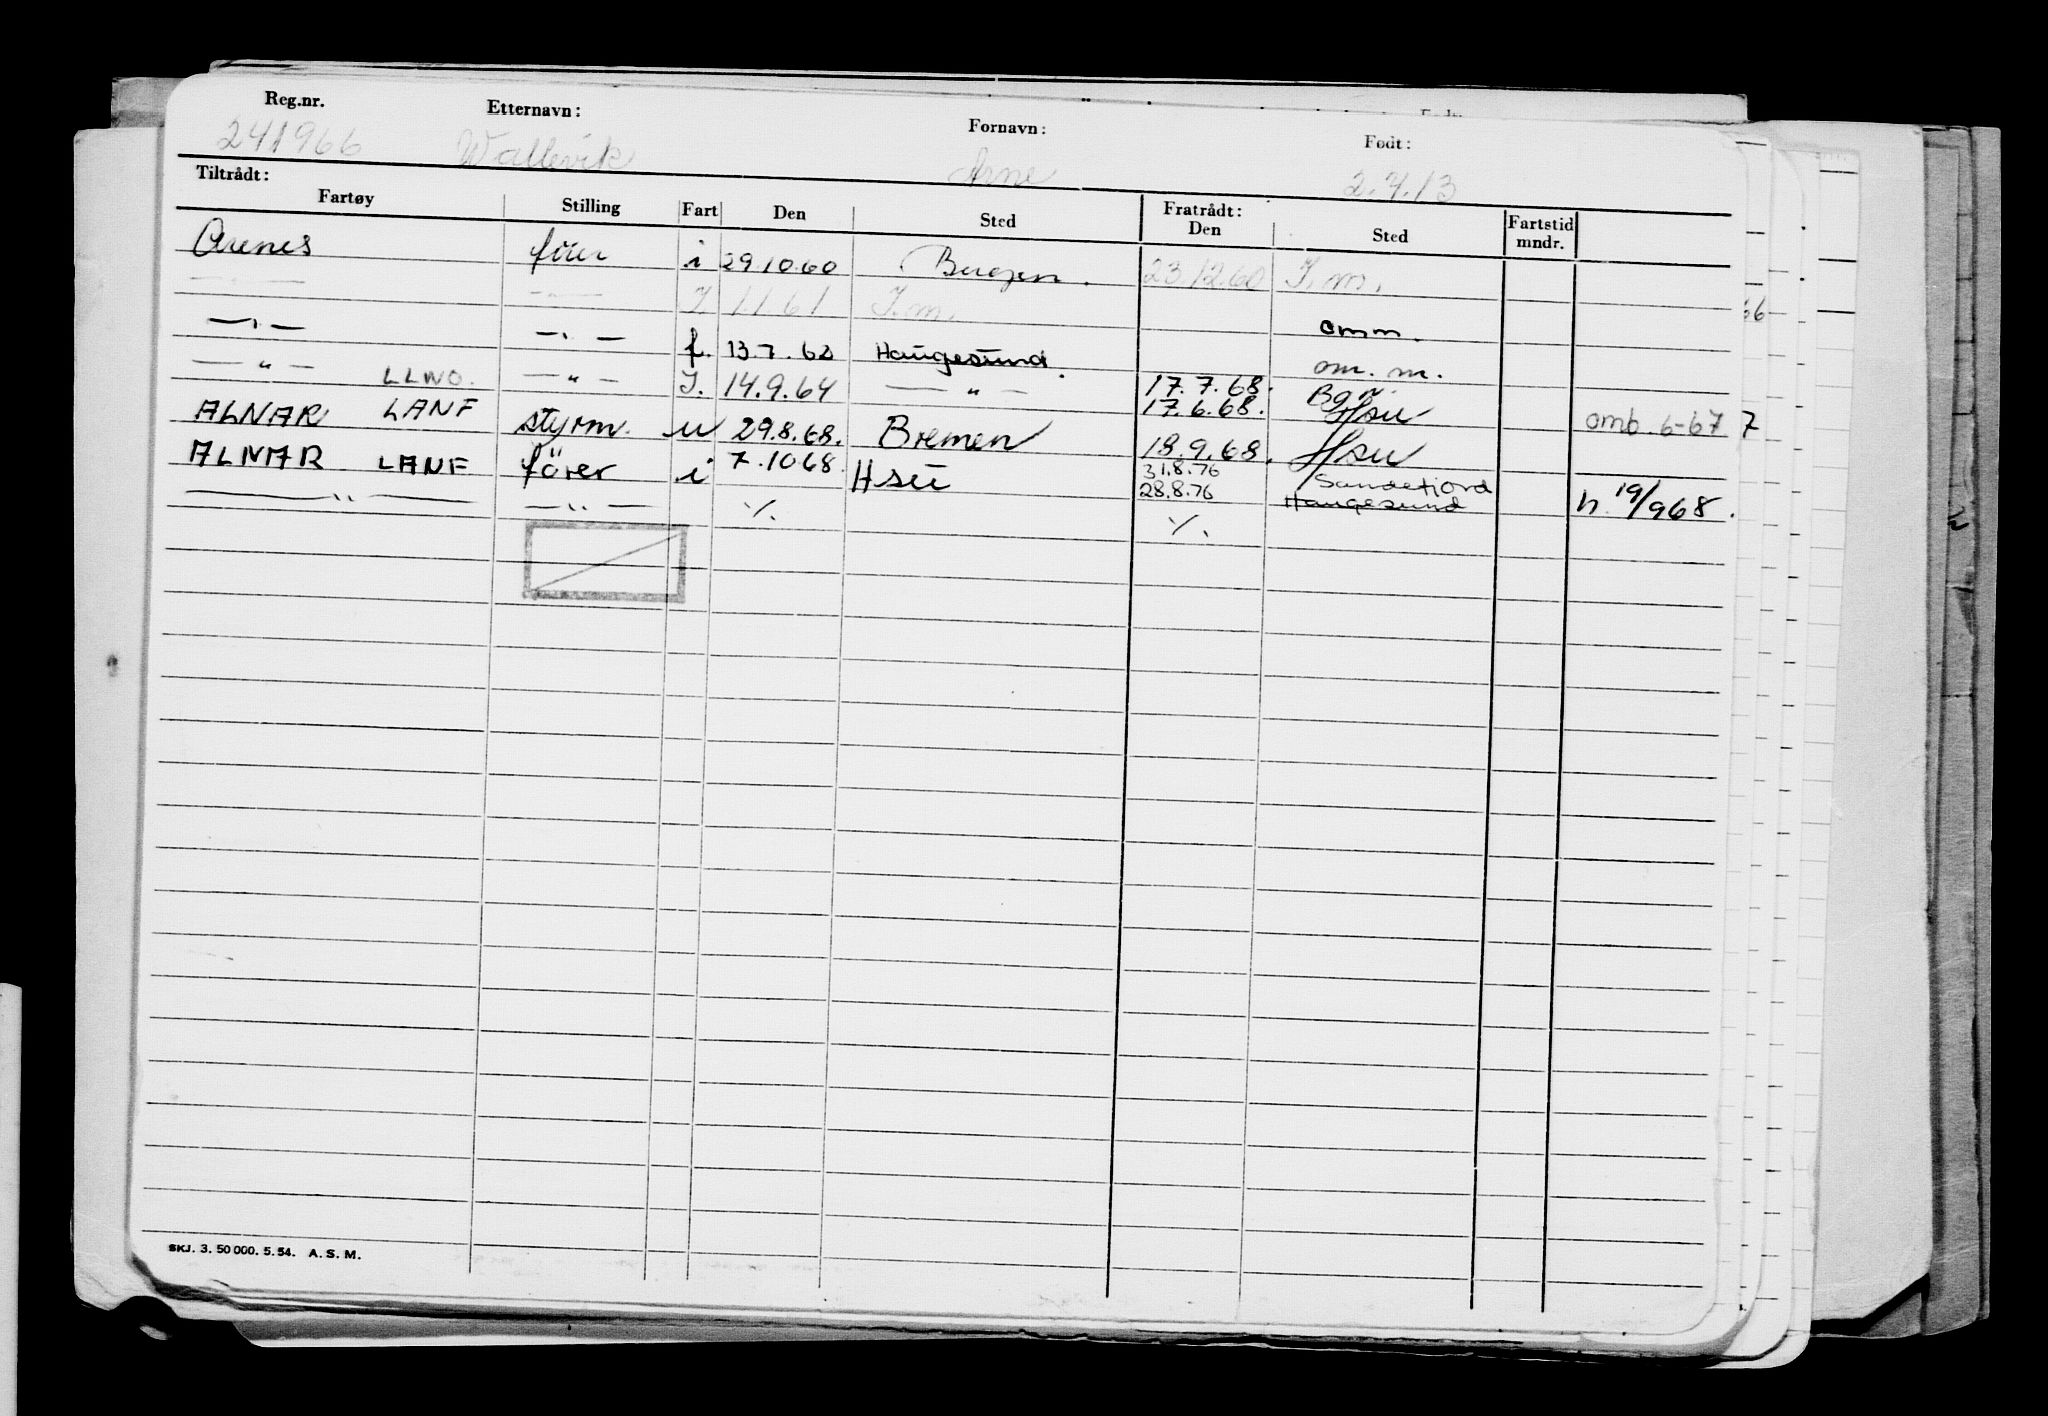 Reg.nr. Etternavn: Fornavn: Født:
241966 Wallevik Arne 2.7.13
Tiltrådt: Fratrådt:
Fartøy Stilling Fart Den Sted Den Sted Fartstid mndr.
Arenes fører i 29.10.60 Bergen. 23.12.60 I.m.
— — I 1.1.61 I.m. omm.
—〃— —〃— f. 13.7.62 Haugesund. om. m.
—〃— LLWO. —〃— I. 14.9.64 —〃— 17.7.68. Bgn.
17.6.68. Hsu omb. 6-67
ALNAR LANF styrm. u 29.8.68. Bremen 18.9.68. Hsu
ALNAR LANF fører i 7.1068. Hsu 31.8.76 Sandefjord
—〃— —〃— ٪. 28.8.76 Haugesund h. 19/968.
٪.
SKJ. 3. 50 000. 5. 54. A. S. M.
66
7